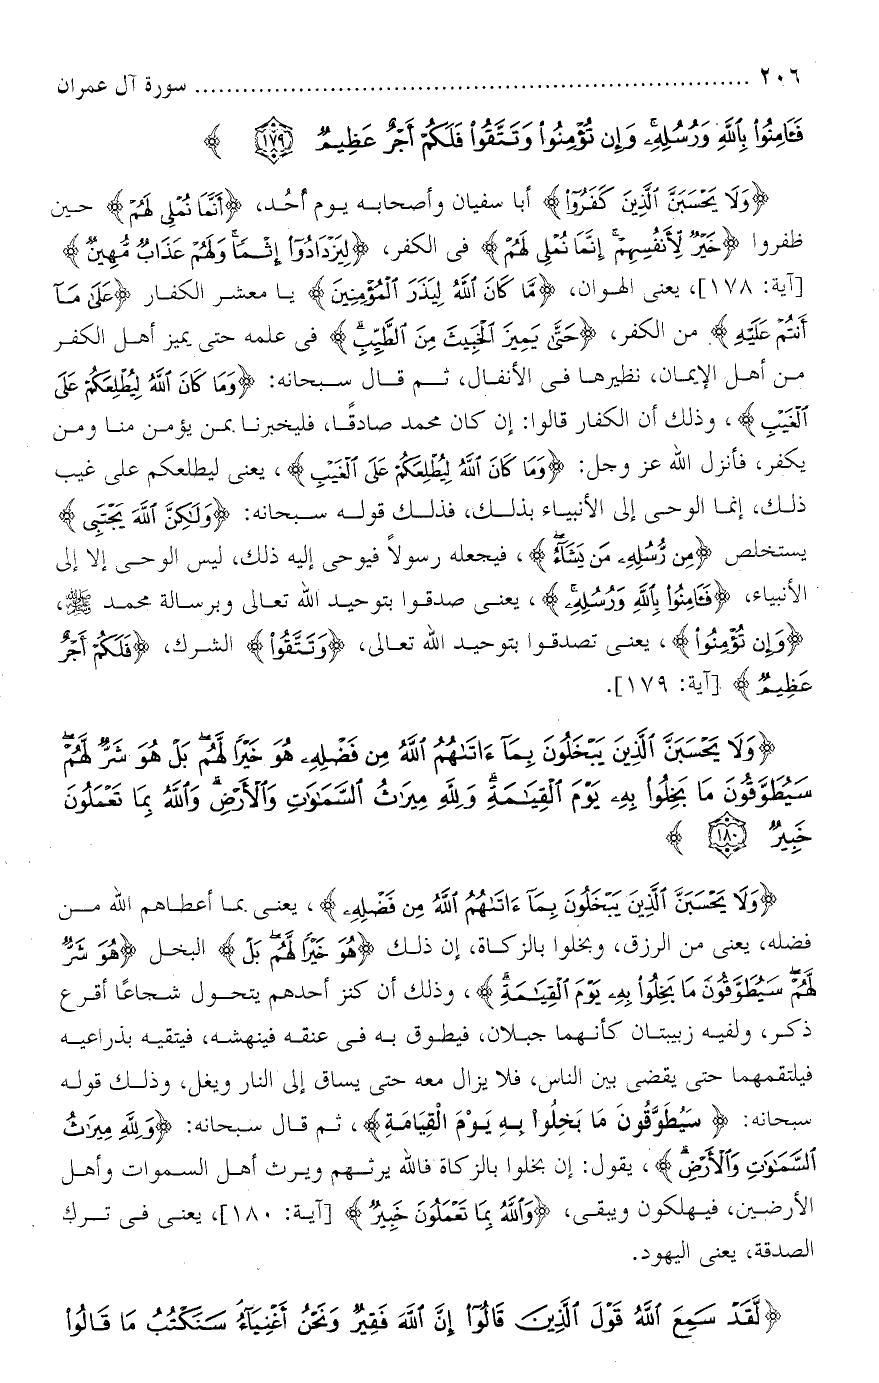 ٢٠٦ ........................................................................ سورة آل عمران
فَـَٔامِنُوا۟ بِٱللَّهِ وَرُسُلِهِۦ ۚ وَإِن تُؤْمِنُوا۟ وَتَتَّقُوا۟ فَلَكُمْ أَجْرٌ عَظِيمٌ ۝١٧٩ ﴾
﴿وَلَا يَحْسَبَنَّ ٱلَّذِينَ كَفَرُوٓا۟﴾ أبا سفيان وأصحابه يوم أُحُد، ﴿أَنَّمَا نُمْلِى لَهُمْ﴾ حين
ظفروا ﴿خَيْرٌ لِّأَنفُسِهِمْ ۚ إِنَّمَا نُمْلِى لَهُمْ﴾ فى الكفر، ﴿لِيَزْدَادُوٓا۟ إِثْمًا ۚ وَلَهُمْ عَذَابٌ مُّهِينٌ﴾
[آية: ١٧٨]، يعنى الهوان، ﴿مَّا كَانَ ٱللَّهُ لِيَذَرَ ٱلْمُؤْمِنِينَ﴾ يا معشر الكفار ﴿عَلَىٰ مَآ
أَنتُمْ عَلَيْهِ﴾ من الكفر، ﴿حَتَّىٰ يَمِيزَ ٱلْخَبِيثَ مِنَ ٱلطَّيِّبِ ۗ﴾ فى علمه حتى يميز أهل الكفر
من أهل الإيمان، نظيرها فى الأنفال، ثم قال سبحانه: ﴿وَمَا كَانَ ٱللَّهُ لِيُطْلِعَكُمْ عَلَى
ٱلْغَيْبِ﴾، وذلك أن الكفار قالوا: إن كان محمد صادقًا، فليخبرنا بمن يؤمن منا ومن
يكفر، فأنزل الله عز وجل: ﴿وَمَا كَانَ ٱللَّهُ لِيُطْلِعَكُمْ عَلَى ٱلْغَيْبِ﴾، يعنى ليطلعكم على غيب
ذلك، إنما الوحى إلى الأنبياء بذلك، فذلك قوله سبحانه: ﴿وَلَـٰكِنَّ ٱللَّهَ يَجْتَبِى﴾
يستخلص ﴿مِن رُّسُلِهِۦ مَن يَشَآءُ ۖ﴾، فيجعله رسولاً فيوحى إليه ذلك، ليس الوحى إلا إلى
الأنبياء، ﴿فَـَٔامِنُوا۟ بِٱللَّهِ وَرُسُلِهِۦ ۚ﴾، يعنى صدقوا بتوحيد الله تعالى وبرسالة محمد ﷺ،
﴿وَإِن تُؤْمِنُوا۟﴾، يعنى تصدقوا بتوحيد الله تعالى، ﴿وَتَتَّقُوا۟﴾ الشرك، ﴿فَلَكُمْ أَجْرٌ
عَظِيمٌ﴾ [آية: ١٧٩].
﴿وَلَا يَحْسَبَنَّ ٱلَّذِينَ يَبْخَلُونَ بِمَآ ءَاتَىٰهُمُ ٱللَّهُ مِن فَضْلِهِۦ هُوَ خَيْرًا لَّهُم ۖ بَلْ هُوَ شَرٌّ لَّهُمْ ۖ
سَيُطَوَّقُونَ مَا بَخِلُوا۟ بِهِۦ يَوْمَ ٱلْقِيَـٰمَةِ ۗ وَلِلَّهِ مِيرَٰثُ ٱلسَّمَـٰوَٰتِ وَٱلْأَرْضِ ۗ وَٱللَّهُ بِمَا تَعْمَلُونَ
خَبِيرٌ ۝١٨٠ ﴾
﴿وَلَا يَحْسَبَنَّ ٱلَّذِينَ يَبْخَلُونَ بِمَآ ءَاتَىٰهُمُ ٱللَّهُ مِن فَضْلِهِۦ﴾، يعنى بما أعطاهم الله من
فضله، يعنى من الرزق، وبخلوا بالزكاة، إن ذلك ﴿هُوَ خَيْرًا لَّهُم ۖ بَلْ﴾ البخل ﴿هُوَ شَرٌّ
لَّهُمْ ۖ سَيُطَوَّقُونَ مَا بَخِلُوا۟ بِهِۦ يَوْمَ ٱلْقِيَـٰمَةِ ۗ﴾، وذلك أن كنز أحدهم يتحول شجاعًا أقرع
ذكر، ولفيه زبيبتان كأنهما جبلان، فيطوق به فى عنقه فينهشه، فيتقيه بذراعيه
فيلتقمهما حتى يقضى بين الناس، فلا يزال معه حتى يساق إلى النار ويغل، وذلك قوله
سبحانه: ﴿ سَيُطَوَّقُونَ مَا بَخِلُواْ بِهِ يَوْمَ الْقِيَامَةِ﴾، ثم قال سبحانه: ﴿وَلِلَّهِ مِيرَٰثُ
ٱلسَّمَـٰوَٰتِ وَٱلْأَرْضِ ۗ﴾، يقول: إن بخلوا بالزكاة فالله يرثهم ويرث أهل السموات وأهل
الأرضين، فيهلكون ويبقى، ﴿وَٱللَّهُ بِمَا تَعْمَلُونَ خَبِيرٌ﴾ [آية: ١٨٠]، يعنى فى ترك
الصدقة، يعنى اليهود.
﴿لَّقَدْ سَمِعَ ٱللَّهُ قَوْلَ ٱلَّذِينَ قَالُوٓا۟ إِنَّ ٱللَّهَ فَقِيرٌ وَنَحْنُ أَغْنِيَآءُ سَنَكْتُبُ مَا قَالُوا۟